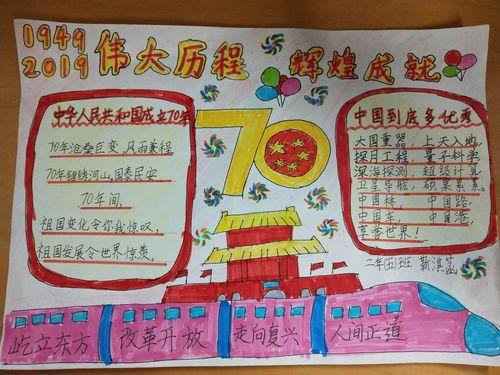 1949
2019
伟大历程 辉煌成就
70
中华人民共和国成立70年
70年沧桑巨变,风雨兼程
70年锦绣河山,国泰民安
70年间,
祖国变化令你我惊叹,
祖国发展令世界惊羡。
中国到底多优秀
大国重器,上天入地,
探月工程,量子科学,
深海探测,超级计算,
卫星导航,硕果累累。
中国桥,中国路,
中国车,中国港,
享誉世界!
二年(五)班 靳淇菡
屹立东方 改革开放 走向复兴 人间正道